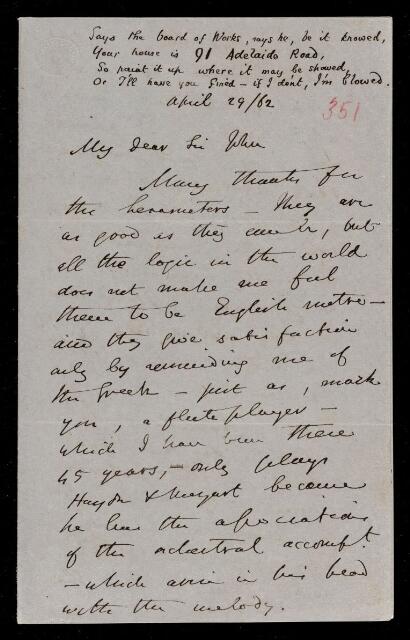 Says the board of Works, says he, be it knowed,
Your house is 91 Adelaide Road,
So paint it up where it may be showed,
Or I'll have you fined — if I dont, I'm blowed.
April 29/62
351
My dear Sir John
Many thanks for
the hexameters — They are
as good as they can be, but
all the logic in the world
does not make me feel
them to be English metre —
and they give satisfaction
only by reminding me of
the Greek — just as, mark
you, a flute player —
which I have been these
45 years, — only plays
Haydn & Mozart because
he has the associations
of the orchestral accompt.
— which arise in his head
with the melody.